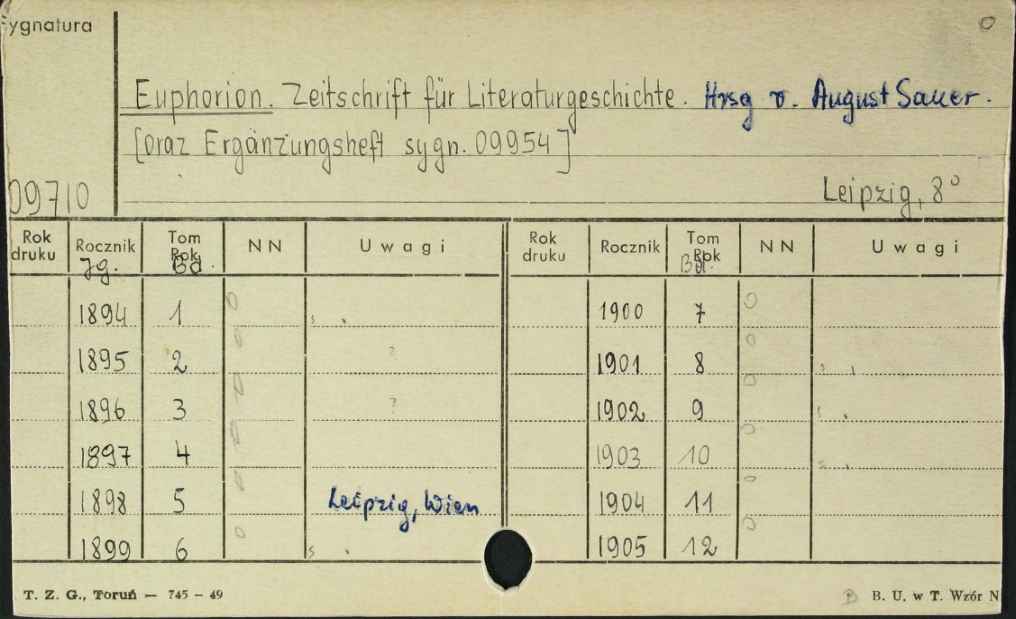 Sygnatura
Euphorion. Zeitschrift für Literaturgeschichte. Hrsg v. August Sauer.
[oraz Ergänzungsheft sygn. 09954]
09710
Leipzig, 8°
Rok druku Rocznik Tom Rok NN Uwagi Rok druku Rocznik Tom Rok NN Uwagi
Jg. Bd. Bd.
1894 1 1900 7
1895 2 ? 1901 8
1896 3 ? 1902 9
1897 4 1903 10
1898 5 Leipzig, Wien 1904 11
1899 6 1905 12
T. Z. G., Toruń — 745 - 49 B. U. w T. Wzór N